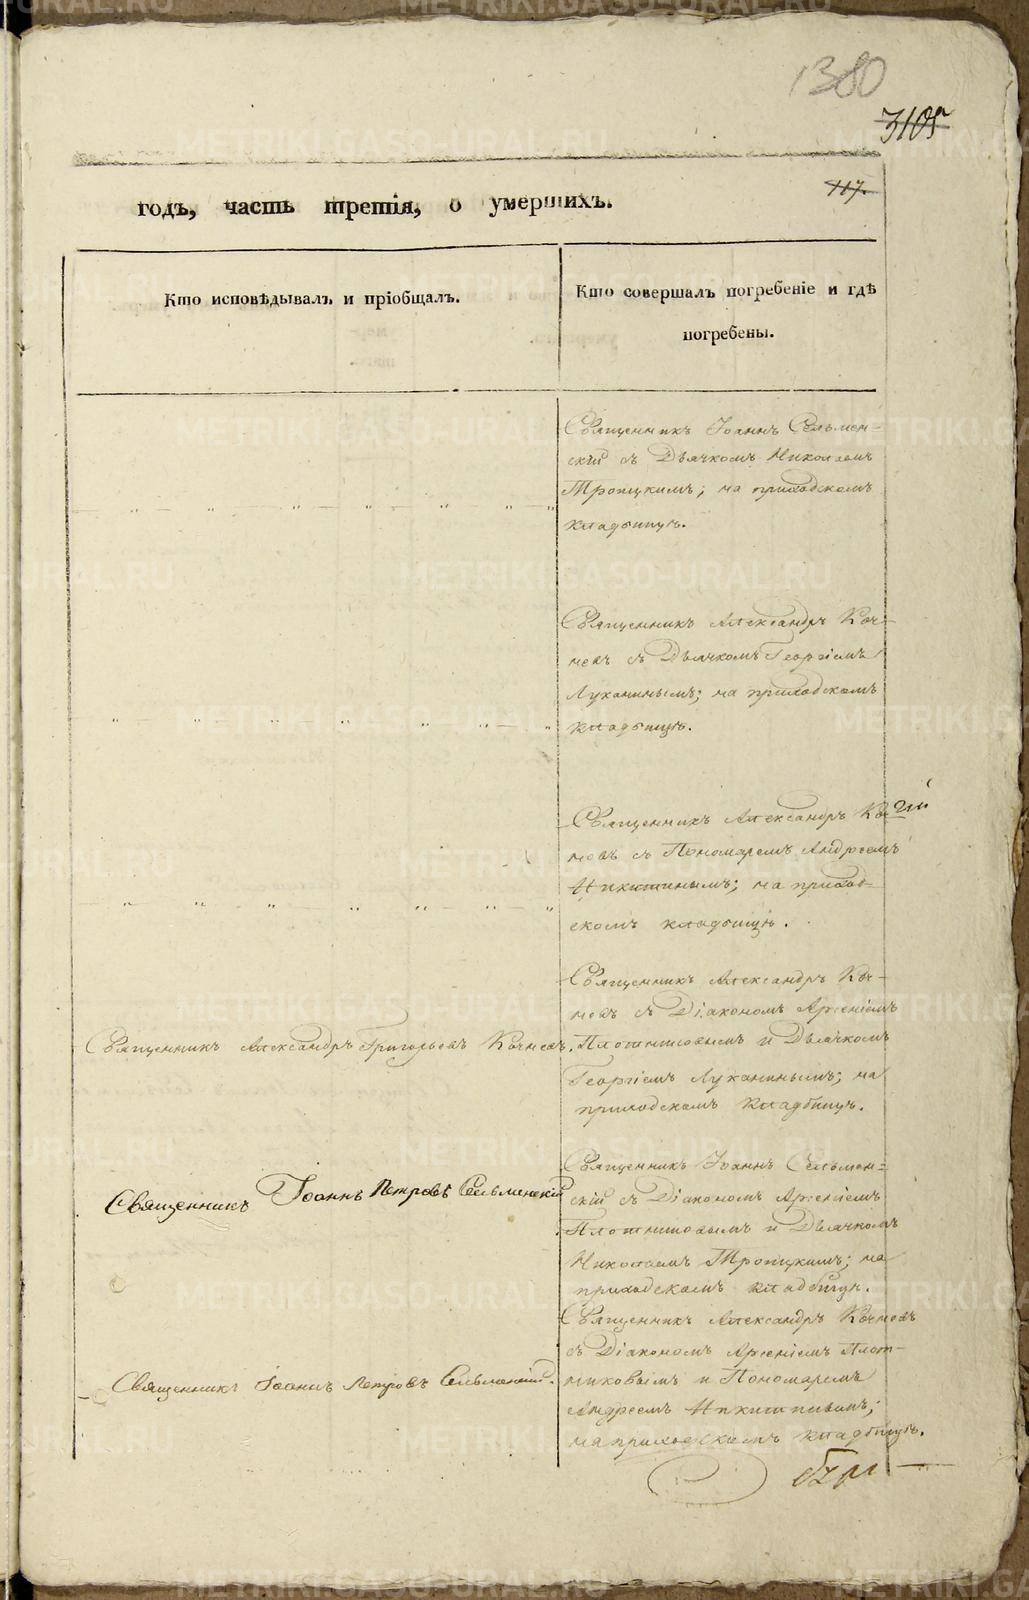 1380
3105
117.
годъ, часть третія, о умершихъ.
Кто исповѣдывалъ и пріобщалъ.
Кто совершалъ погребеніе и гдѣ
погребены.
Священникъ Іоаннъ Сельмен-
скій съ Дьячкомъ Николаемъ
Троицкимъ; на приходскомъ
кладбищѣ.
Священникъ Александръ Коч-
невъ съ Дьячкомъ Георгіемъ
Луканинымъ; на приходскомъ
кладбищѣ.
Священникъ Александръ Коч-
невъ съ Пономаремъ Андреемъ
Никитинымъ; на приход-
скомъ кладбищѣ.
Священникъ Александръ Коч-
невъ съ Діакономъ Арсеніемъ
Священникъ Александръ Григорьевъ Кочневъ.
Плотниковымъ и Дьячкомъ
Георгіемъ Луканинымъ; на
приходскомъ кладбищѣ.
Священникъ Іоаннъ Сельмен-
Священникъ Іоаннъ Петровъ Сельменскій
скій съ Діакономъ Арсеніемъ
Плотниковымъ и Дьячкомъ
Николаемъ Троицкимъ; на
приходскомъ кладбищѣ.
Священникъ Александръ Кочневъ
съ Діакономъ Арсеніемъ Плот-
Священникъ Іоаннъ Петровъ Сельменскій.
никовымъ и Пономаремъ
Андреемъ Никитинымъ;
на приходскомъ кладбищѣ.
METRIKI.GASO-URAL.RU